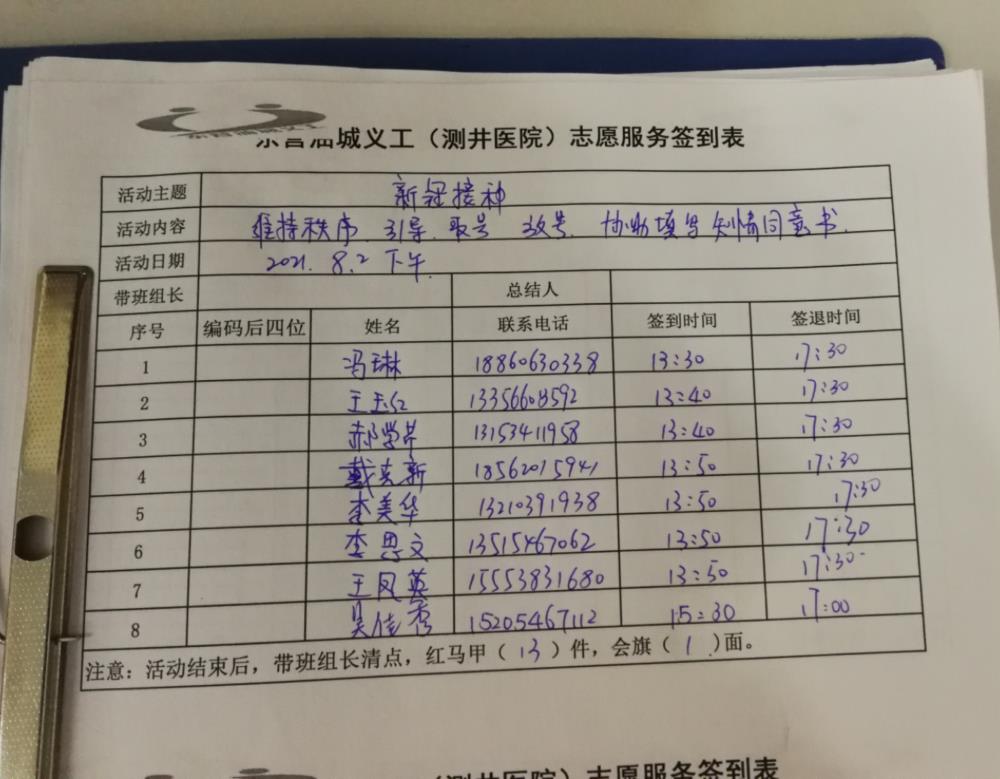 东营油城义工（测井医院）志愿服务签到表
活动主题 新冠接种
活动内容 维持秩序.引导.取号 放号.协助填写知情同意书.
活动日期 2021.8.2下午.
带班组长 总结人
序号 编码后四位 姓名 联系电话 签到时间 签退时间
1 冯琳 18860630338 13:30 17:30
2 王玉红 13356608592 13:40 17:30
3 郝学芹 13153411958 13:40 17:30
4 戴东新 18562015941 13:50 17:30
5 李美华 13210391938 13:50 17:30
6 李思文 13515467062 13:50 17:30
7 王凤英 15553831680 13:50 17:30
8 吴佳秀 15205467112 15:30 17:00
注意：活动结束后，带班组长清点，红马甲（13）件，会旗（1）面。
（测井医院）志愿服务签到表